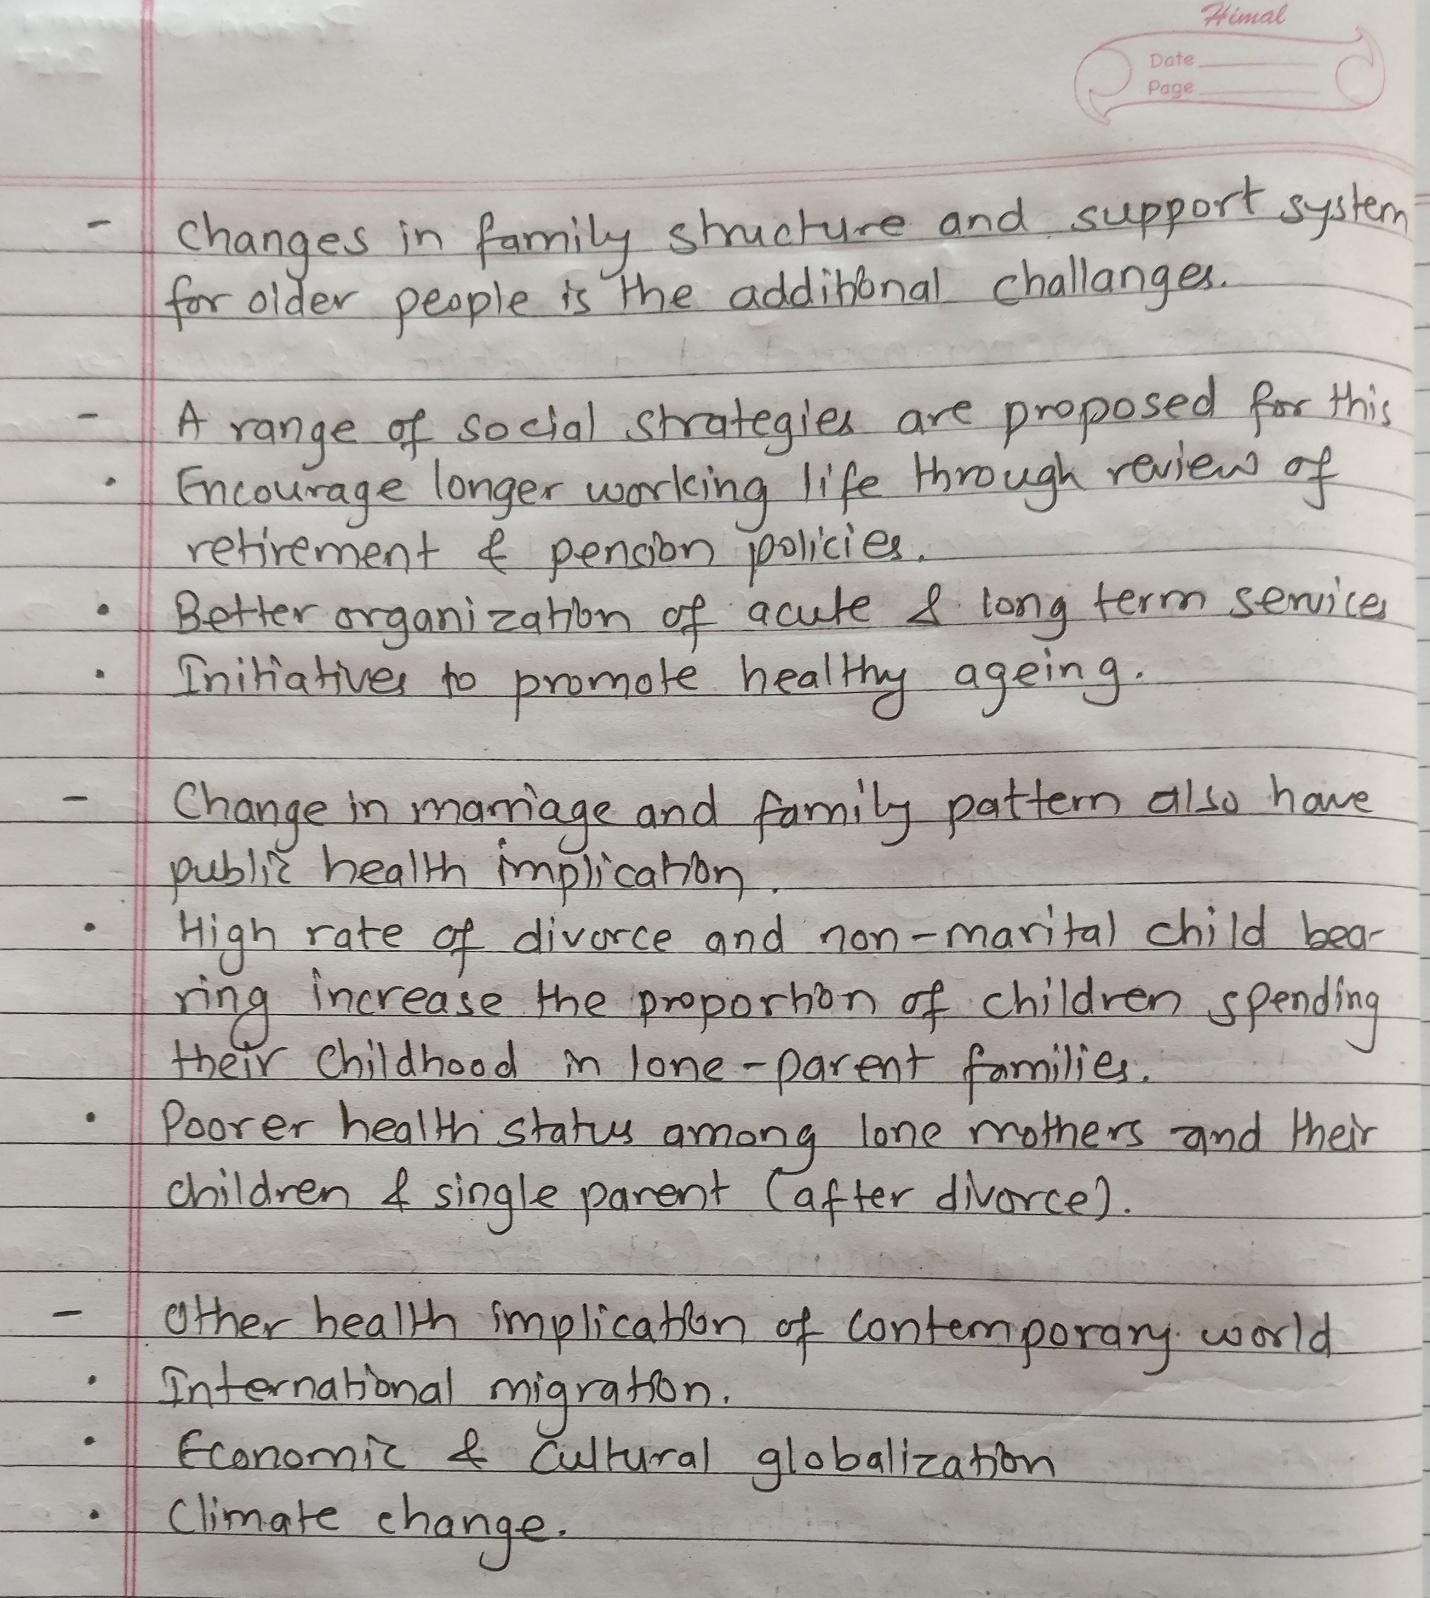 Himal
Date
Page
- Changes in family structure and support system
for older people is the additional challanges.
- A range of social strategies are proposed for this
• Encourage longer working life through review of
retirement & pension policies.
• Better organization of acute & long term services
• Initiatives to promote healthy ageing.
- Change in marriage and family pattern also have
public health implication.
• High rate of divorce and non-marital child bea-
ring increase the proportion of children spending
their childhood in lone-parent families.
• Poorer health status among lone mothers and their
children & single parent (after divorce).
- Other health implication of contemporary world
• International migration.
• Economic & Cultural globalization
• Climate change.